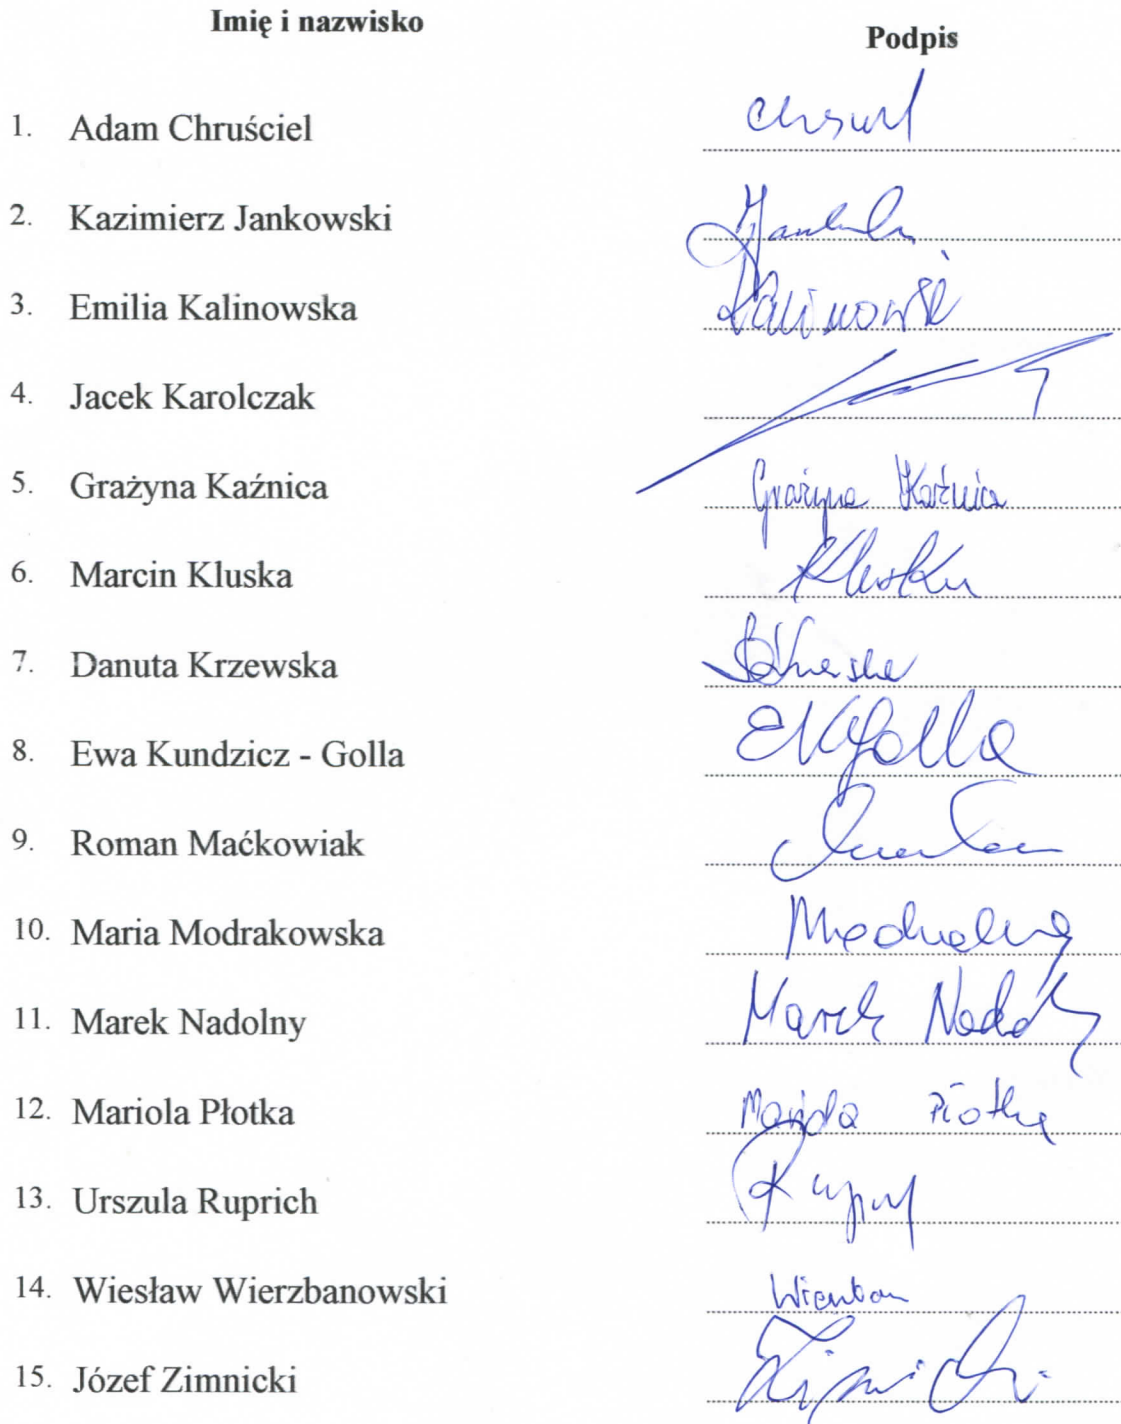 Imię i nazwisko Podpis
1. Adam Chruściel
2. Kazimierz Jankowski
3. Emilia Kalinowska Kalinowsk
4. Jacek Karolczak
5. Grażyna Kaźnica Grażyna Kaźnica
6. Marcin Kluska Kluska
7. Danuta Krzewska
8. Ewa Kundzicz - Golla EKGolla
9. Roman Maćkowiak
10. Maria Modrakowska
11. Marek Nadolny Marek Nadolny
12. Mariola Płotka Mariola Płotka
13. Urszula Ruprich
14. Wiesław Wierzbanowski
15. Józef Zimnicki